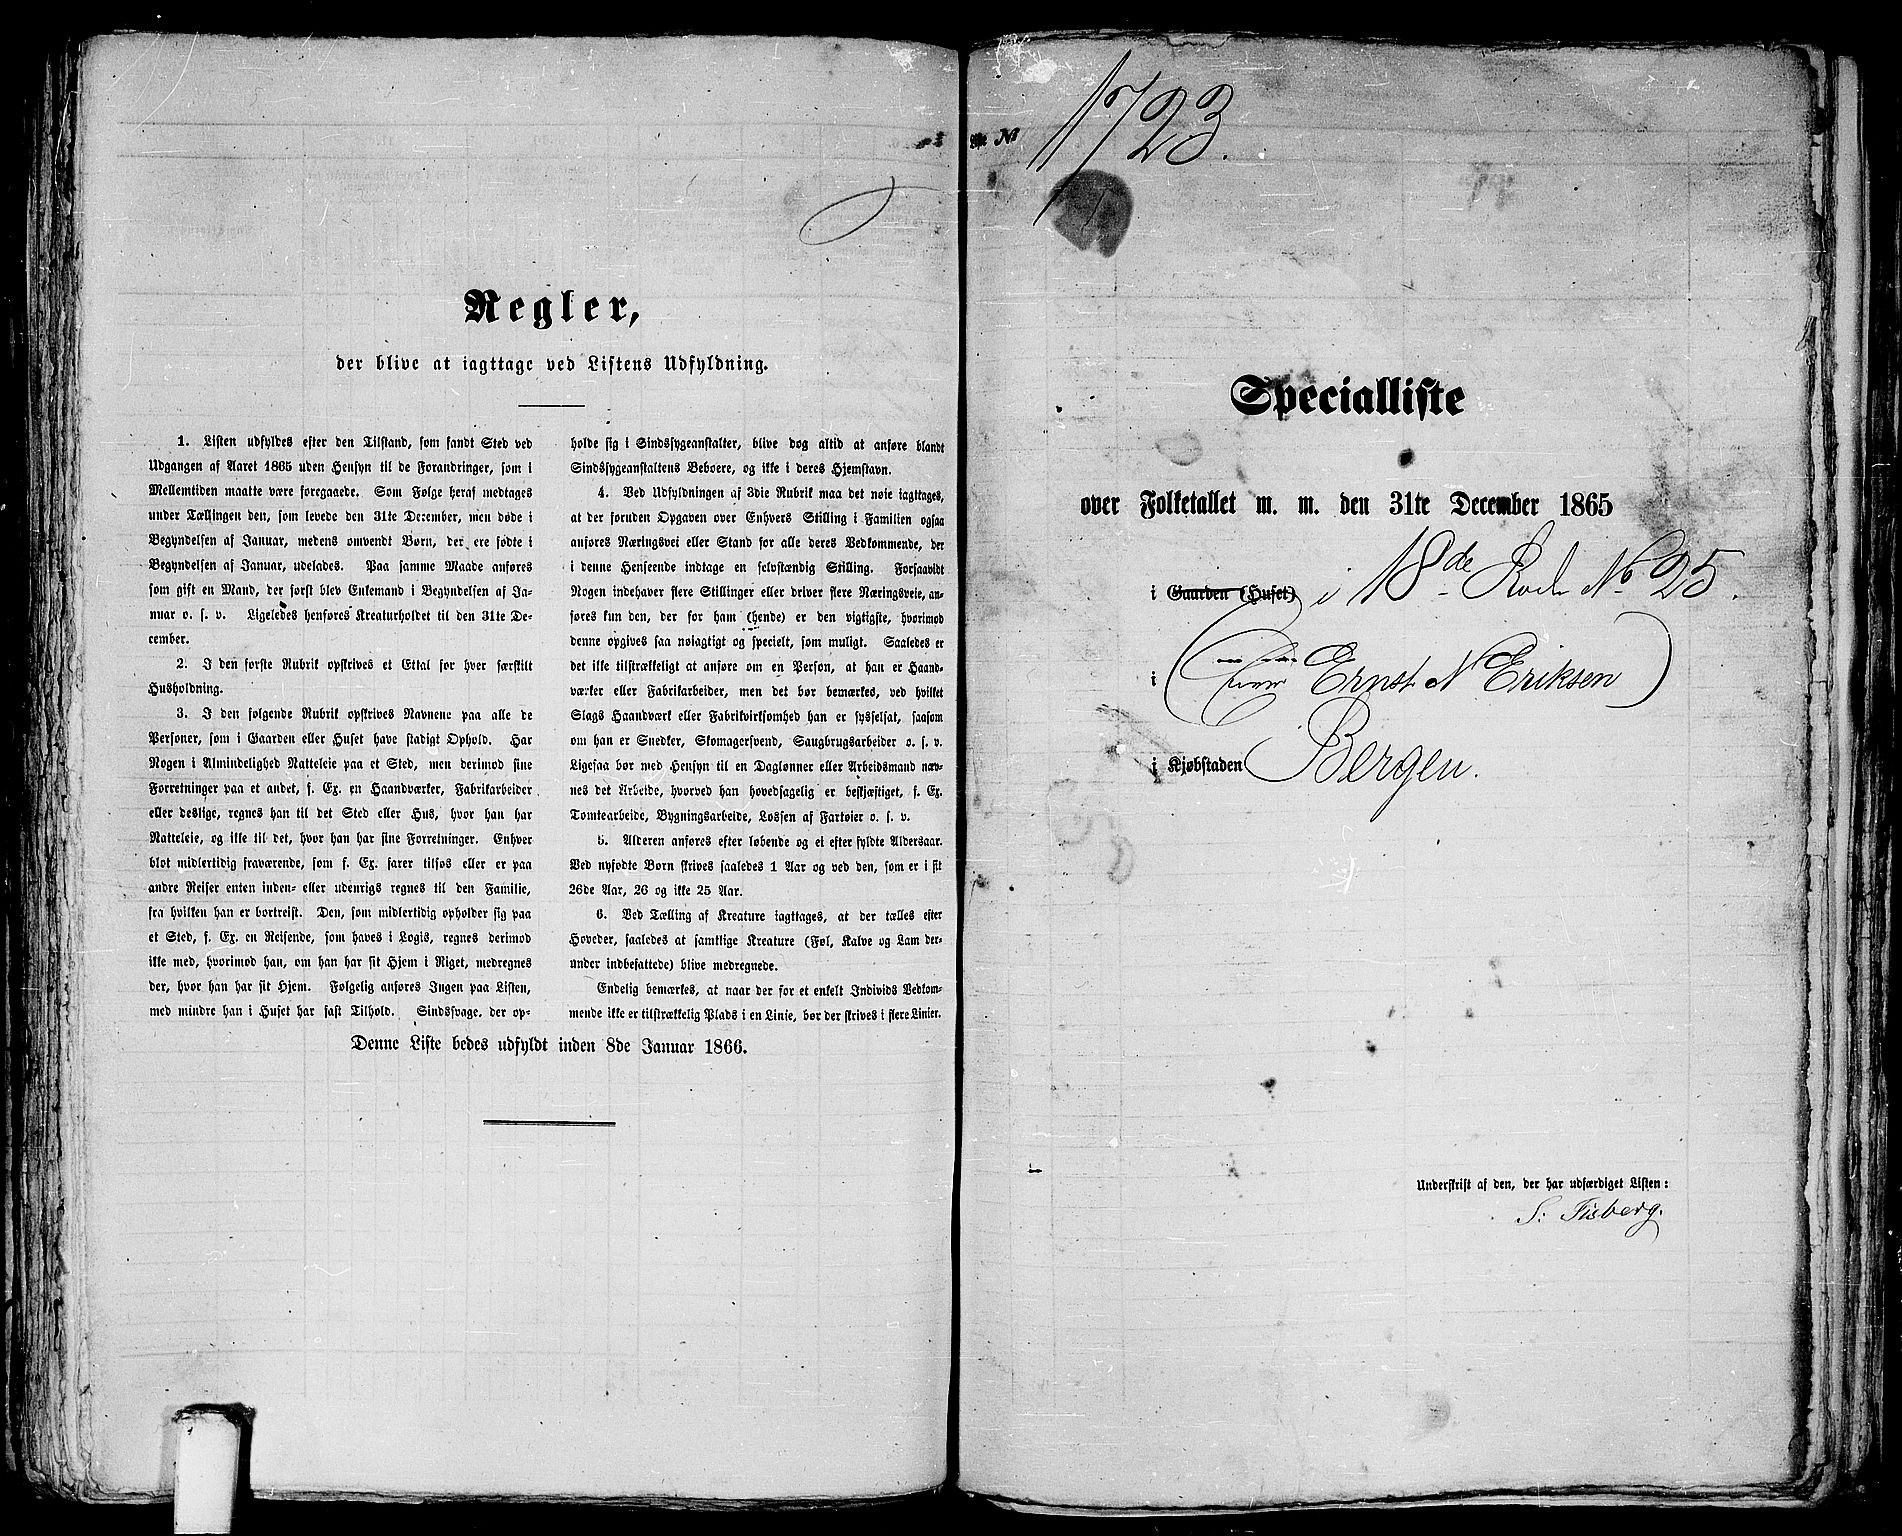 Regler,
der blive at iagttage ved Listens Udfyldning.
1. Listen udfyldes efter den Tilstand, som fandt Sted ved
Udgangen af Aaret 1865 uden Hensyn til de Forandringer, som i
Mellemtiden maatte være foregaaede. Som Følge heraf medtages
under Tællingen den, som levede den 31te December, men døde i
Begyndelsen af Januar, medens omvendt Børn, der ere fødte i
Begyndelsen af Januar, udelades. Paa samme Maade anføres
som gift en Mand, der først blev Enkemand i Begyndelsen af Ja-
nuar o. s. v. Ligeledes henføres Kreaturholdet til den 31te De-
cember.
2. I den første Rubrik opskrives et Ettal for hver særskilt
Husholdning.
3. I den følgende Rubrik opskrives Navnene paa alle de
Personer, som i Gaarden eller Huset have stadigt Ophold. Har
Nogen i Almindelighed Natteleie paa et Sted, men derimod sine
Forretninger paa et andet, f. Ex. en Haandværker, Fabrikarbeider
eller deslige, regnes han til det Sted eller Hus, hvor han har
Natteleie, og ikke til det, hvor han har sine Forretninger. Enhver
blot midlertidig fraværende, som f. Ex. farer tilsøs eller er paa
andre Reiser enten inden- eller udenrigs regnes til den Familie,
fra hvilken han er bortreist. Den, som midlertidig opholder sig paa
et Sted, f. Ex. en Reisende, som haves i Logis, regnes derimod
ikke med, hvorimod han, om han har sit Hjem i Riget, medregnes
der, hvor han har sit Hjem. Følgelig anføres Ingen paa Listen,
med mindre han i Huset har fast Tilhold. Sindssvage, der op-
holde sig i Sindssygeanstalter, blive dog altid at anføre blandt
Sindssygeanstaltens Beboere, og ikke i deres Hjemstavn.
4. Ved Udfyldningen af 3die Rubrik maa det nøie iagttages,
at der foruden Opgaven over Enhvers Stilling i Familien ogsaa
anføres Næringsvei eller Stand for alle deres Vedkommende, der
i denne Henseende indtage en selvstændig Stilling. Forsaavidt
Nogen indehaver flere Stillinger eller driver flere Næringsveie, an-
føres kun den, der for ham (hende) er den vigtigste, hvorimod
denne opgives saa nøiagtigt og specielt, som muligt. Saaledes er
det ikke tilstrækkeligt at anføre om en Person, at han er Haand-
værker eller Fabrikarbeider, men det bør bemærkes, ved hvilket
Slags Haandværk eller Fabrikvirksomhed han er sysselsat, saasom
om han er Snedker, Skomagersvend, Saugbrugsarbeider o. s. v.
Ligesaa bør med Hensyn til en Daglønner eller Arbeidsmand næv-
nes det Arbeide, hvorved han hovedsagelig er beskjæftiget, f. Ex.
Tomtearbeide, Bygningsarbeide, Lossen af Fartøier o. s. v.
5. Alderen anføres efter løbende og ei efter fyldte Aldersaar.
Ved nyfødte Børn skrives saaledes 1 Aar og ved den, som er i sit
26de Aar, 26 og ikke 25 Aar.
6. Ved Tælling af Kreature iagttages, at der tælles efter
Hoveder, saaledes at samtlige Kreature (Føl, Kalve og Lam der-
under indbefattede) blive medregnede.
Endelig bemærkes, at naar der for et enkelt Individs Vedkom-
mende ikke er tilstrækkelig Plads i en Linie, bør der skrives i flere Linier.
Denne Liste bedes udfyldt inden 8de Januar 1866.
No 1723.
Specialliste
over Folketallet m. m. den 31te December 1865
i Gaarden (Huset) i 18de Rode No 25.
i Ernst N Eriksen
i Kjøbstaden Bergen.
Underskrift af den, der har udfærdiget Listen:
S: Fisberg.